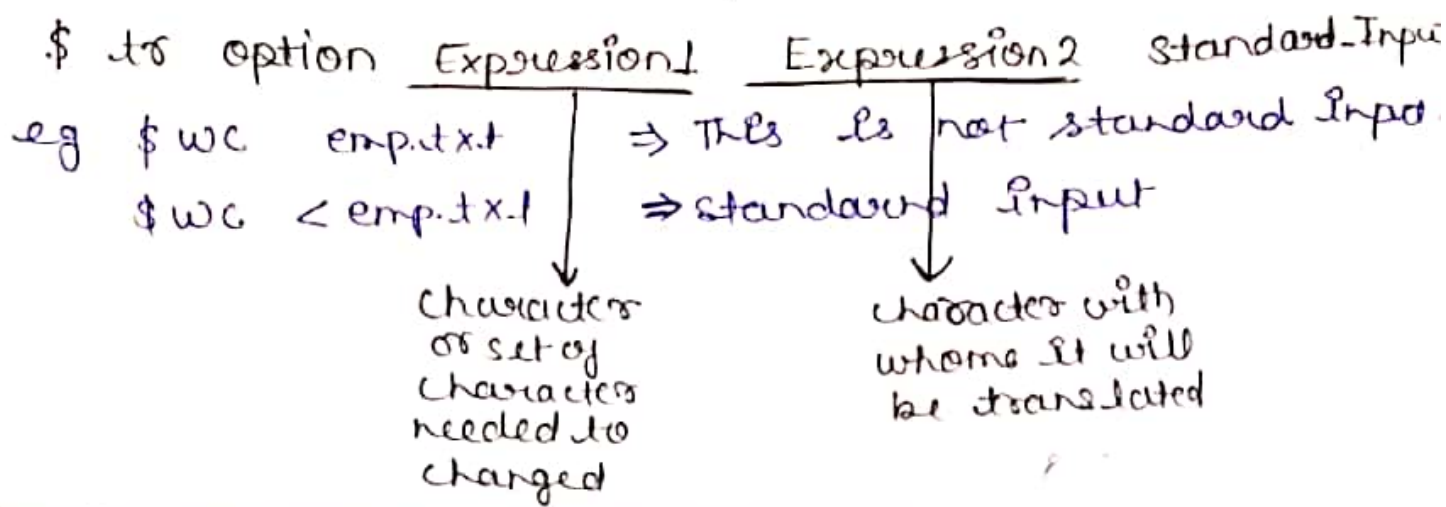 $ tr option Expression1 Expression2 Standard-Inpu
eg $ wc emp.txt ⇒ This is not standard Inpu
$ wc < emp.txt ⇒ standard input
character
or set of
character
needed to
changed
character with
whome it will
be translated